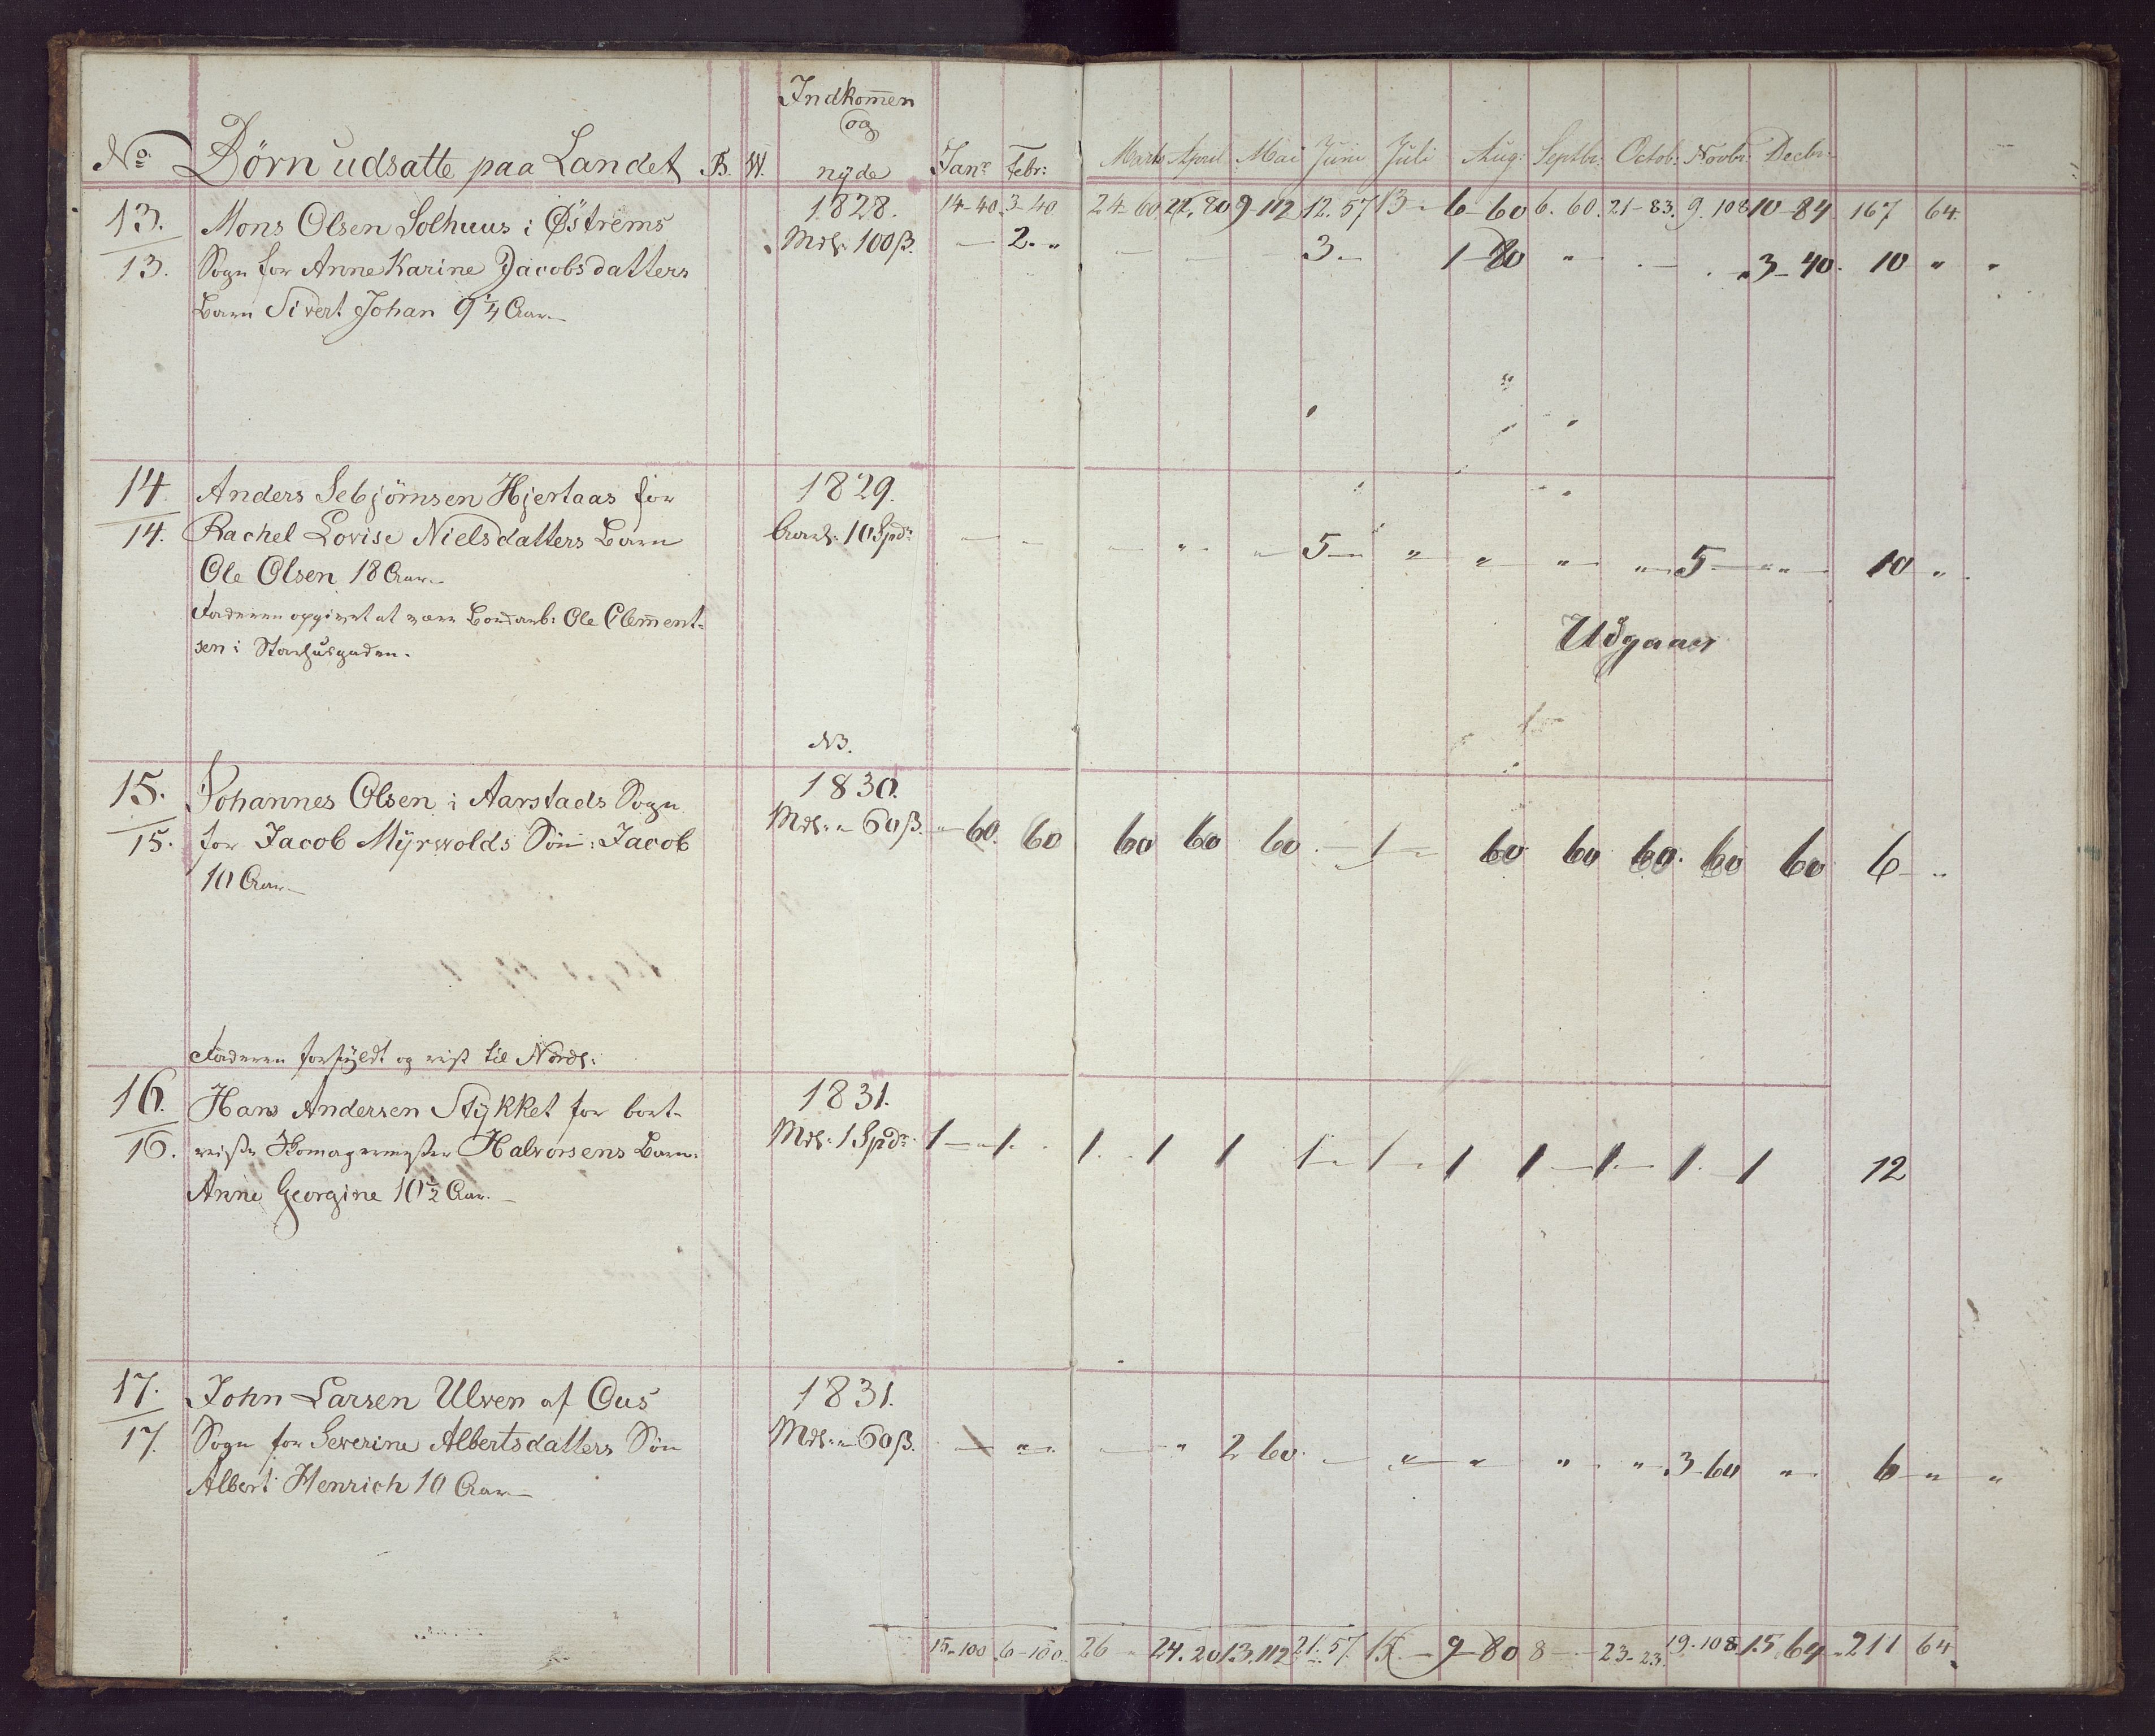 Indkom̄en
og
No. Børn udsatte paa Landet B. W. nyde Janr. Febr: Marts April Mai Juni Juli Aug: Septbr: Octob: Novbr: Decbr:
13. Mons Olsen Solhuus i Østrems 1828. 14-40. 3-40 24-60 22.80 9-112 12.57 13 - 6-60 6.60. 21-83. 9.108 10-84. 167 64.
13. Sogn for Anne Karine Jacobsdatters Mdl: 100ß. — 2. „ — — — 3 — 1-80 „ — . 3-40. 10 „ „
Barn Sivert Johan 9¼ Aar.
14. Anders Sebjörnsen Hjertaas for 1829.
14. Rachel Lovise Nielsdatters Barn Aarl: 10 Spdr — — — „ „ 5 — „ „ „ „ 5 — „ 10 „
Ole Olsen 18 Aar.
Faderen opgivet at være Bordarb: Ole Clem̄ent-
sen i Storhusgaden.
Udgaaer
NB.
15. Johannes Olsen i Aarstads Sogn 1830.
15. for Jacob Myrwolds Søn: Jacob Mdl: „ 60ß. „ 60. 60 60 60 60. — 1 — 60 60 60. 60 60 6 „
10 Aar.
Faderen forskyldt og reist til Nordl:
16. Hans Andersen Stykket for bort- 1831.
16. reiste Halvorsens Barn: Mdl: 1 Spdr. 1 — 1. 1. 1 1 1 1 1 1 1 1. 1 12
Anne Georgine 10½ Aar.
17. John Larsen Ulven af Ous 1831.
17. Sogn for Severine Albertsdatters Søn Mdl: „ 60ß. — „ — „ 2 60. — „ „ „ „ 3-60 „ 6 „ „
Albert Henrich 10 Aar
15-100 6-100. 26 24.20 13.112 21.57. 15. — 9-80 8 — 23-23. 19.108. 15 64 211 64.